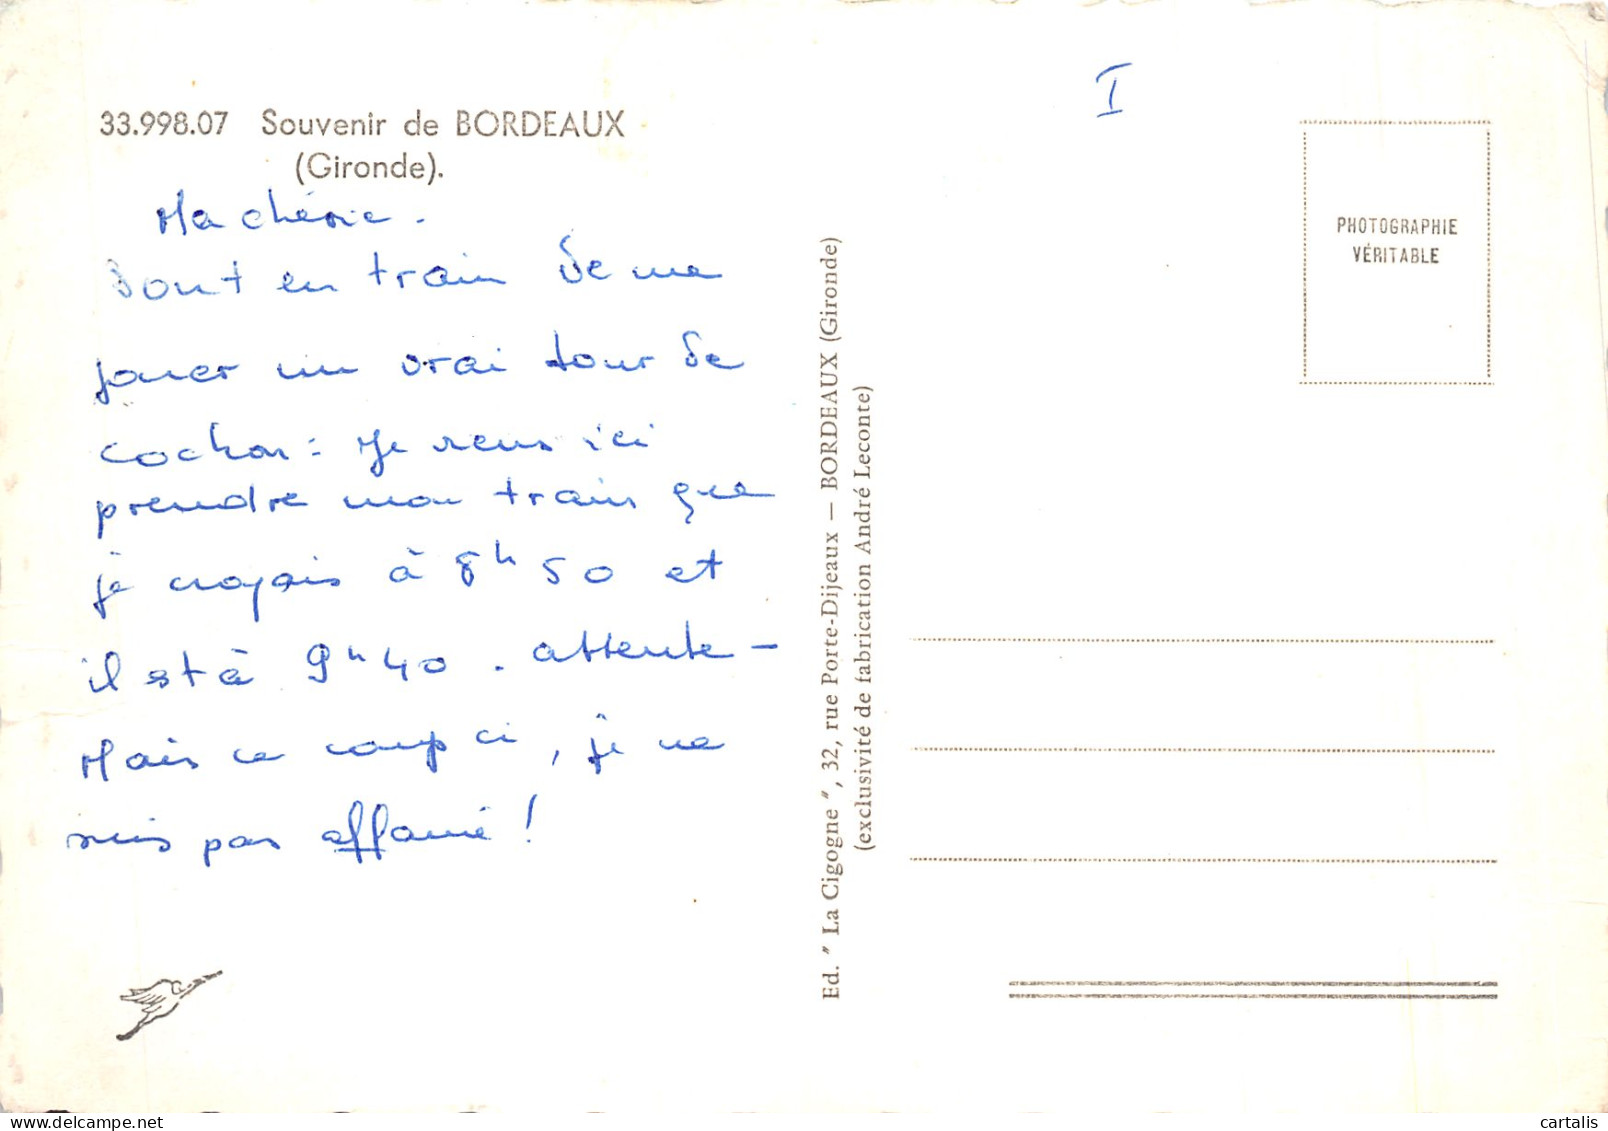 33.998.07 Souvenir de BORDEAUX
(Gironde).
Ma chérie.
Sont en train de me
jouer un vrai tour de
cochon : Je viens ici
prendre mon train que
je croyais à 8h50 et
il est à 9h40. attente -
Mais ce coup ci, je ne
suis pas affamé !
Ed. " La Cigogne ", 32, rue Porte-Dijeaux — BORDEAUX (Gironde)
(exclusivité de fabrication André Leconte)
I
PHOTOGRAPHIE
VÉRITABLE
cartalis